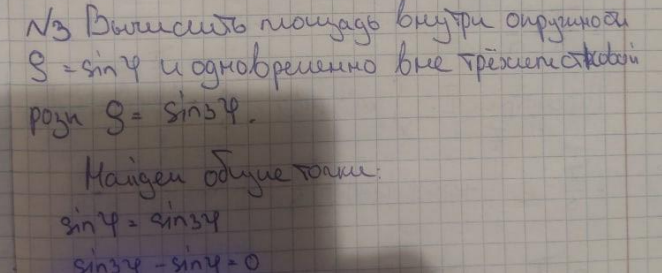 N3 Вычислить площадь внутри окружности
ρ = sinφ и одновременно вне трёхлепестковой
розы ρ = sin3φ.
Найдем общие точки:
sinφ = sin3φ
sin3φ - sinφ = 0